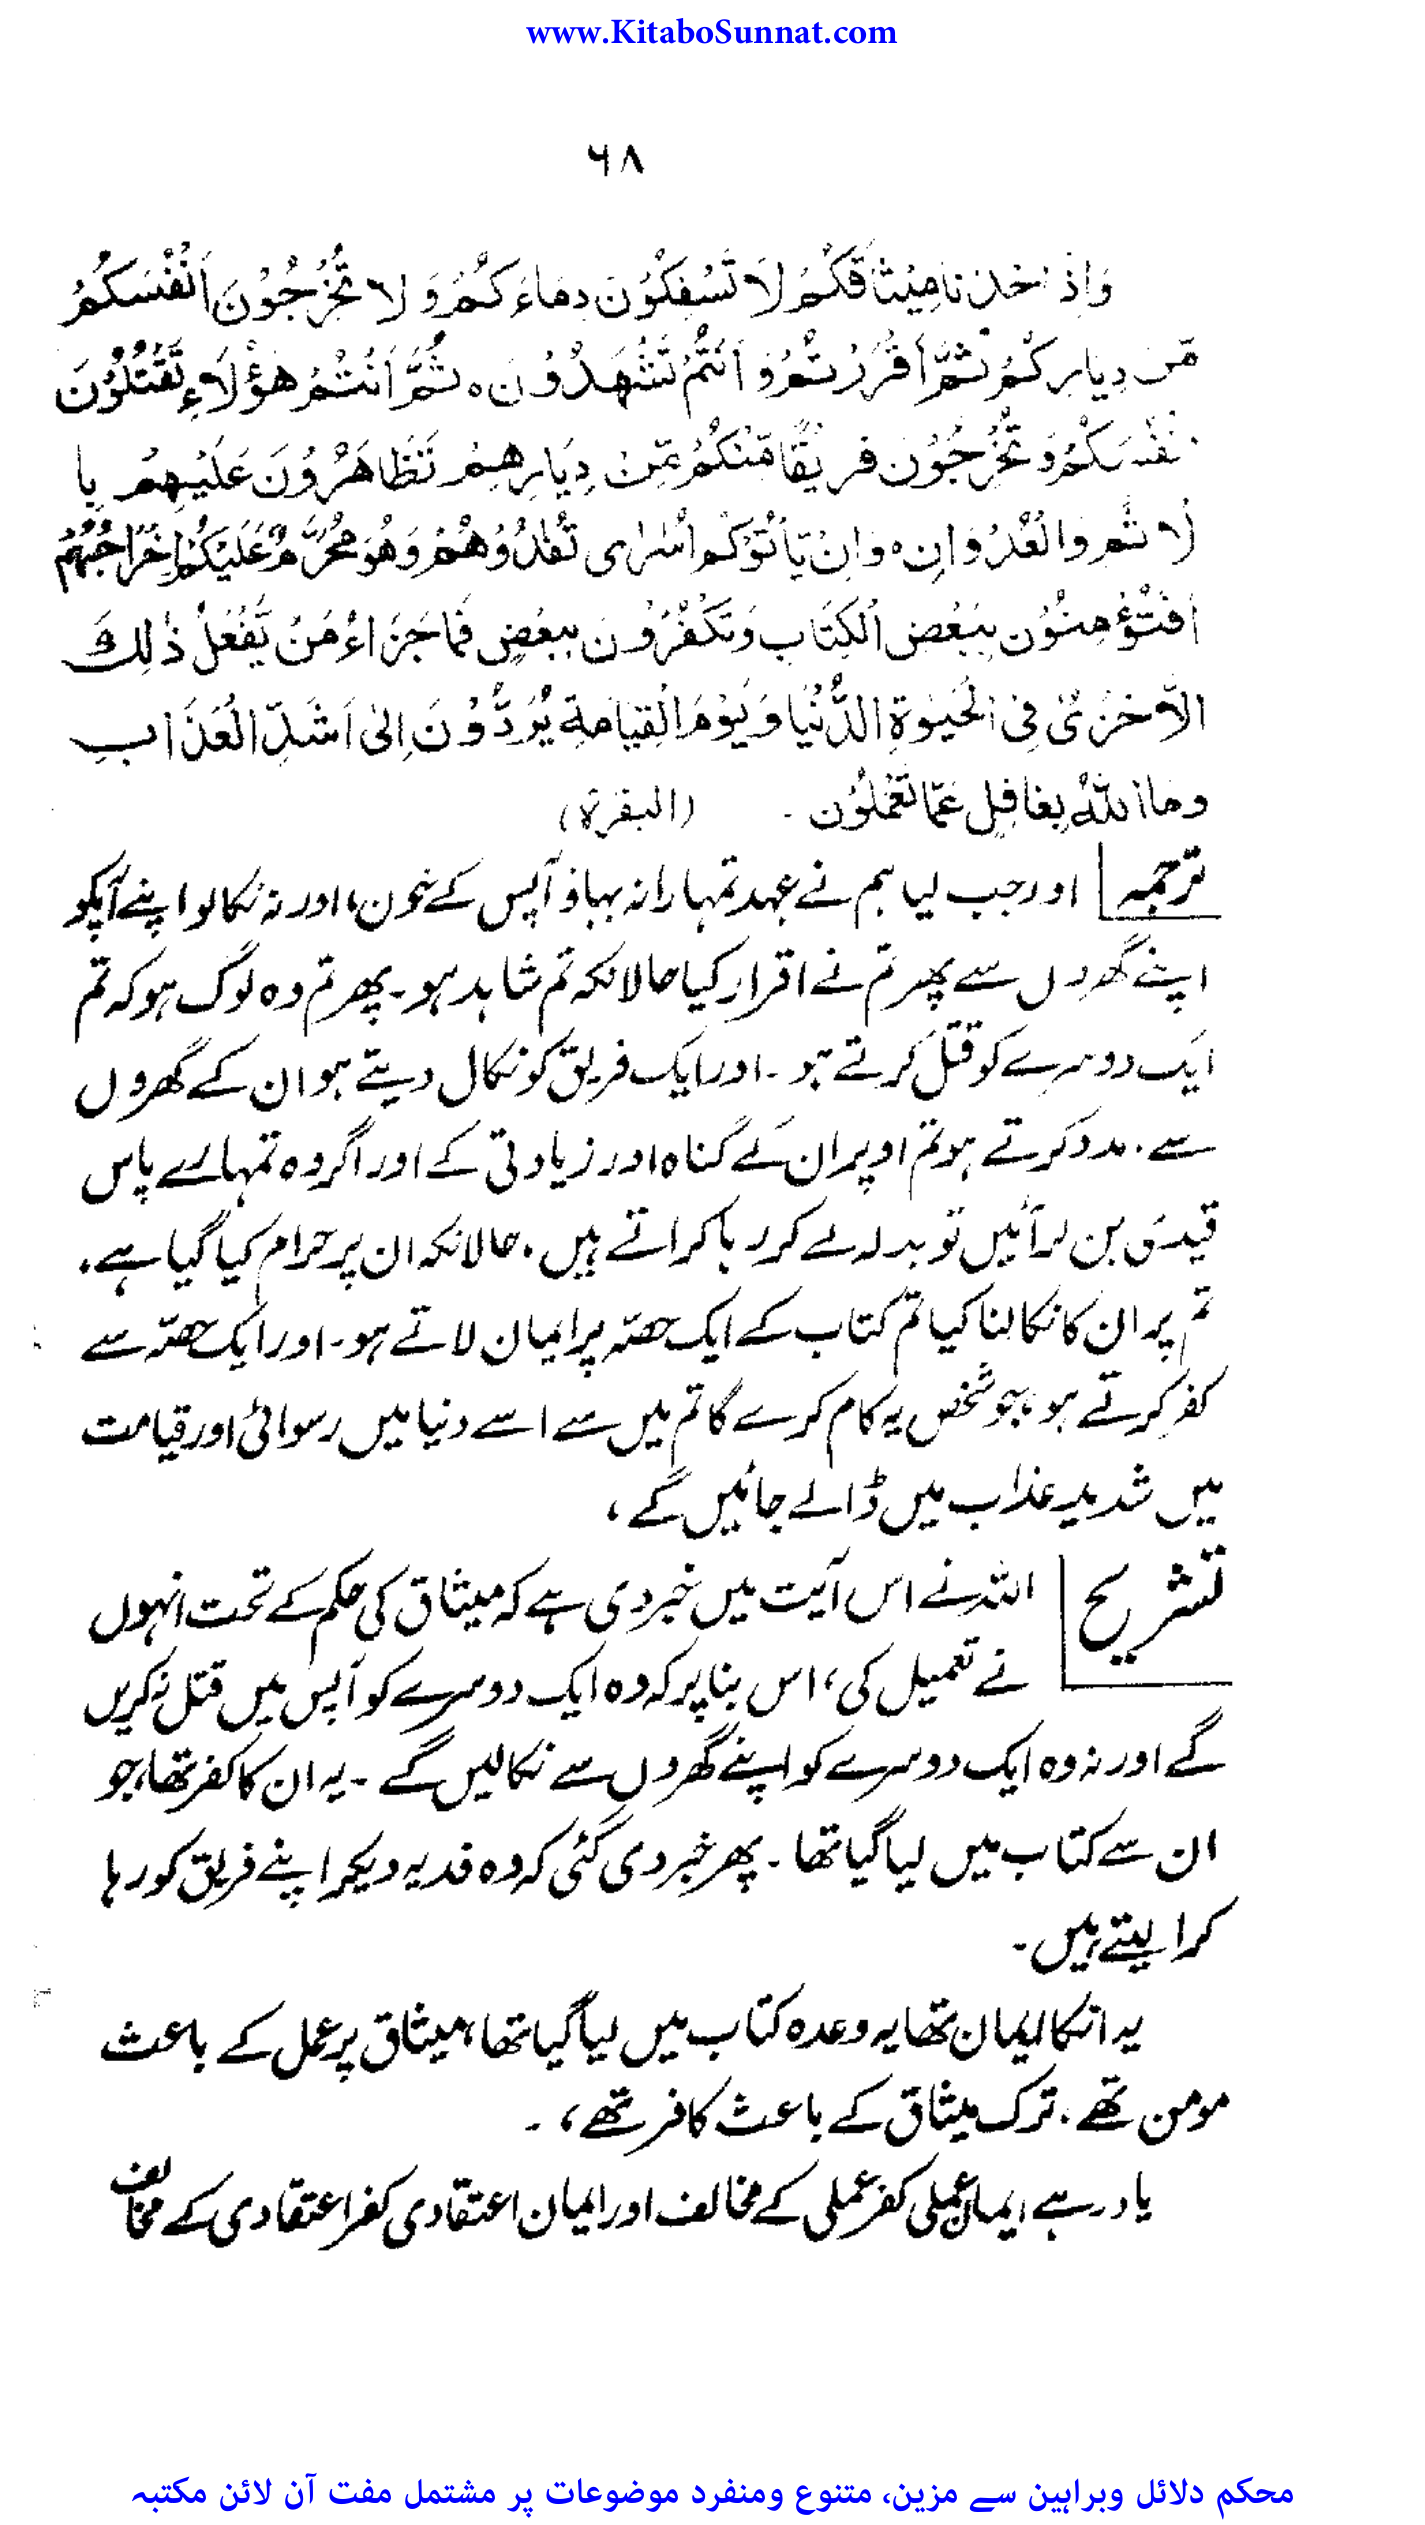 www.KitaboSunnat.com
۶۸
وَاِذْ اَخَذْنَا مِیْثَاقَکُمْ لَا تَسْفِکُوْنَ دِمَاءَکُمْ وَلَا تُخْرِجُوْنَ اَنْفُسَکُمْ
مِّنْ دِیَارِکُمْ ثُمَّ اَقْرَرْتُمْ وَ اَنْتُمْ تَشْهَدُوْنَ ہ ثُمَّ اَنْتُمْ هٰؤُلَاءِ تَقْتُلُوْنَ
نْفُسَکُمْ وَ تُخْرِجُوْنَ فَرِیْقًا مِّنْکُمْ مِّنْ دِیَارِهِمْ تَظَاهَرُوْنَ عَلَیْهِمْ بِا
لَاِثْمِ وَالْعُدْوَانِ ہ وَاِنْ یَّاْتُوْکُمْ اُسٰرٰی تُفٰدُوْهُمْ وَهُوَ مُحَرَّمٌ عَلَیْکُمْ اِخْرَاجُهُمْ
اَفَتُؤْمِنُوْنَ بِبَعْضِ الْکِتَابِ وَتَکْفُرُوْنَ بِبَعْضٍ فَمَا جَزَاءُ مَنْ یَّفْعَلُ ذٰلِکَ
اِلَّا خِزْیٌ فِی الْحَیٰوةِ الدُّنْیَا وَیَوْمَ الْقِیَامَةِ یُرَدُّوْنَ اِلٰی اَشَدِّ الْعَذَابِ
وما اللهُ بِغَافِلٍ عَمَّا تَعْمَلُوْن ۔ (البقرة)
ترجمہ اور جب لیا ہم نے عہد تمہارا نہ بہاؤ آپس کے خون، اور نہ نکالو اپنے آپکو
اپنے گھروں سے پھر تم نے اقرار کیا حالانکہ تم شاہد ہو۔ پھر تم وہ لوگ ہو کہ تم
ایک دوسرے کو قتل کرتے ہو۔ اور ایک فریق کو نکال دیتے ہو ان کے گھروں
سے۔ مدد کرتے ہو تم اوپر ان کے گناہ اور زیادتی کے اور اگر وہ تمہارے پاس
قیدی بن کر آئیں تو بدلہ لے کر رہا کراتے ہیں۔ حالانکہ ان پر حرام کیا گیا ہے۔
تم پر ان کا نکالنا کیا تم کتاب کے ایک حصّہ پر ایمان لاتے ہو۔ اور ایک حصّہ سے
کفر کرتے ہو، جو شخص یہ کام کرے گا تم میں سے اسے دنیا میں رسوائی اور قیامت
میں شدید عذاب میں ڈالے جائیں گے،
تشریح اللہ نے اس آیت میں خبر دی ہے کہ میثاق کی حکم کے تحت انہوں
نے تعمیل کی، اس بنا پر کہ وہ ایک دوسرے کو آپس میں قتل نہ کریں
گے اور نہ وہ ایک دوسرے کو اپنے گھروں سے نکالیں گے ۔ یہ ان کا کفر تھا، جو
ان سے کتاب میں لیا گیا تھا ۔ پھر خبر دی گئی کہ وہ فدیہ دیکر اپنے فریق کو رہا
کرا لیتے ہیں۔
یہ انکا ایمان تھا یہ وعدہ کتاب میں لیا گیا تھا، میثاق پر عمل کے باعث
مومن تھے۔ ترک میثاق کے باعث کافر تھے، ۔
یاد رہے ایمان عملی کفر عملی کے مخالف اور ایمان اعتقادی کفر اعتقادی کے مخالف
محکم دلائل وبراہین سے مزین، متنوع ومنفرد موضوعات پر مشتمل مفت آن لائن مکتبہ